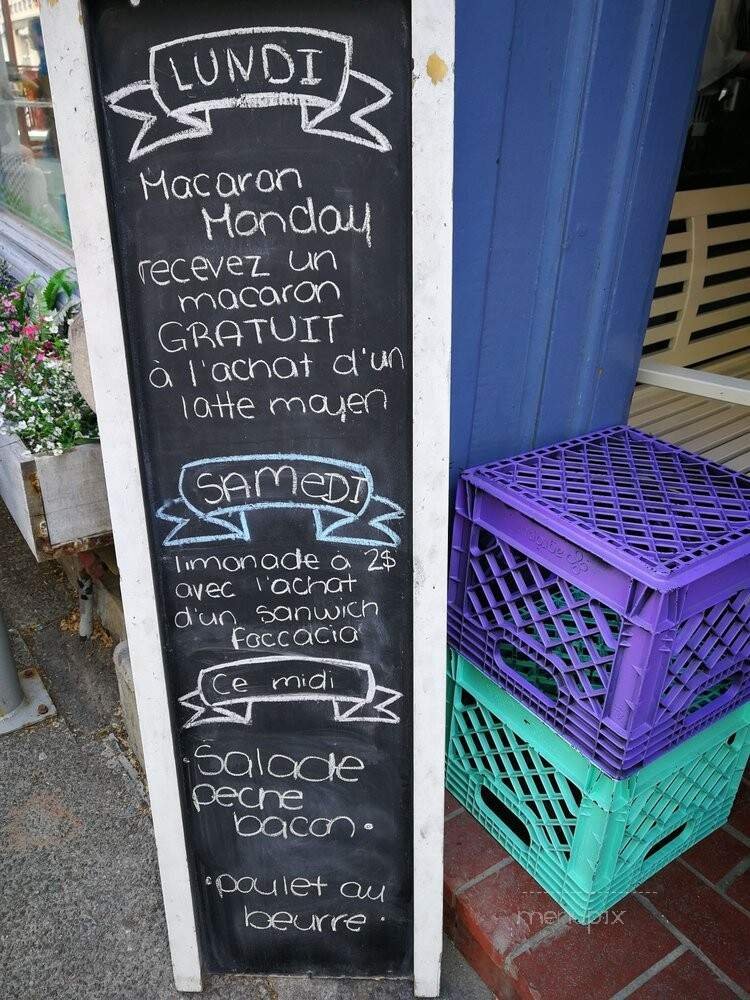 LUNDI
Macaron
Monday
recevez un
macaron
GRATUIT
à l'achat d'un
latte moyen
SAMeDI
limonade à 2$
avec l'achat
d'un sanwich
faccacia
Ce midi
Salade
peche
bacon.
•poulet au
beurre•
menupix